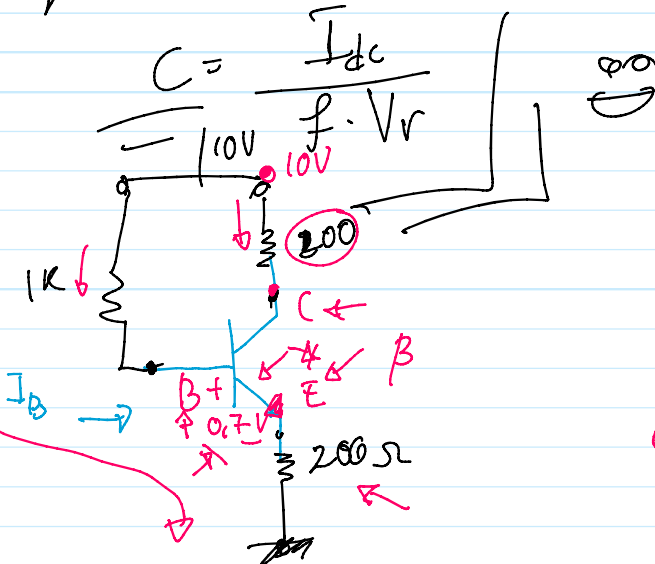 C = Idc
f · Vr
10V
10V
200
1K
C
β
B +
E
IB
0,7V
200Ω